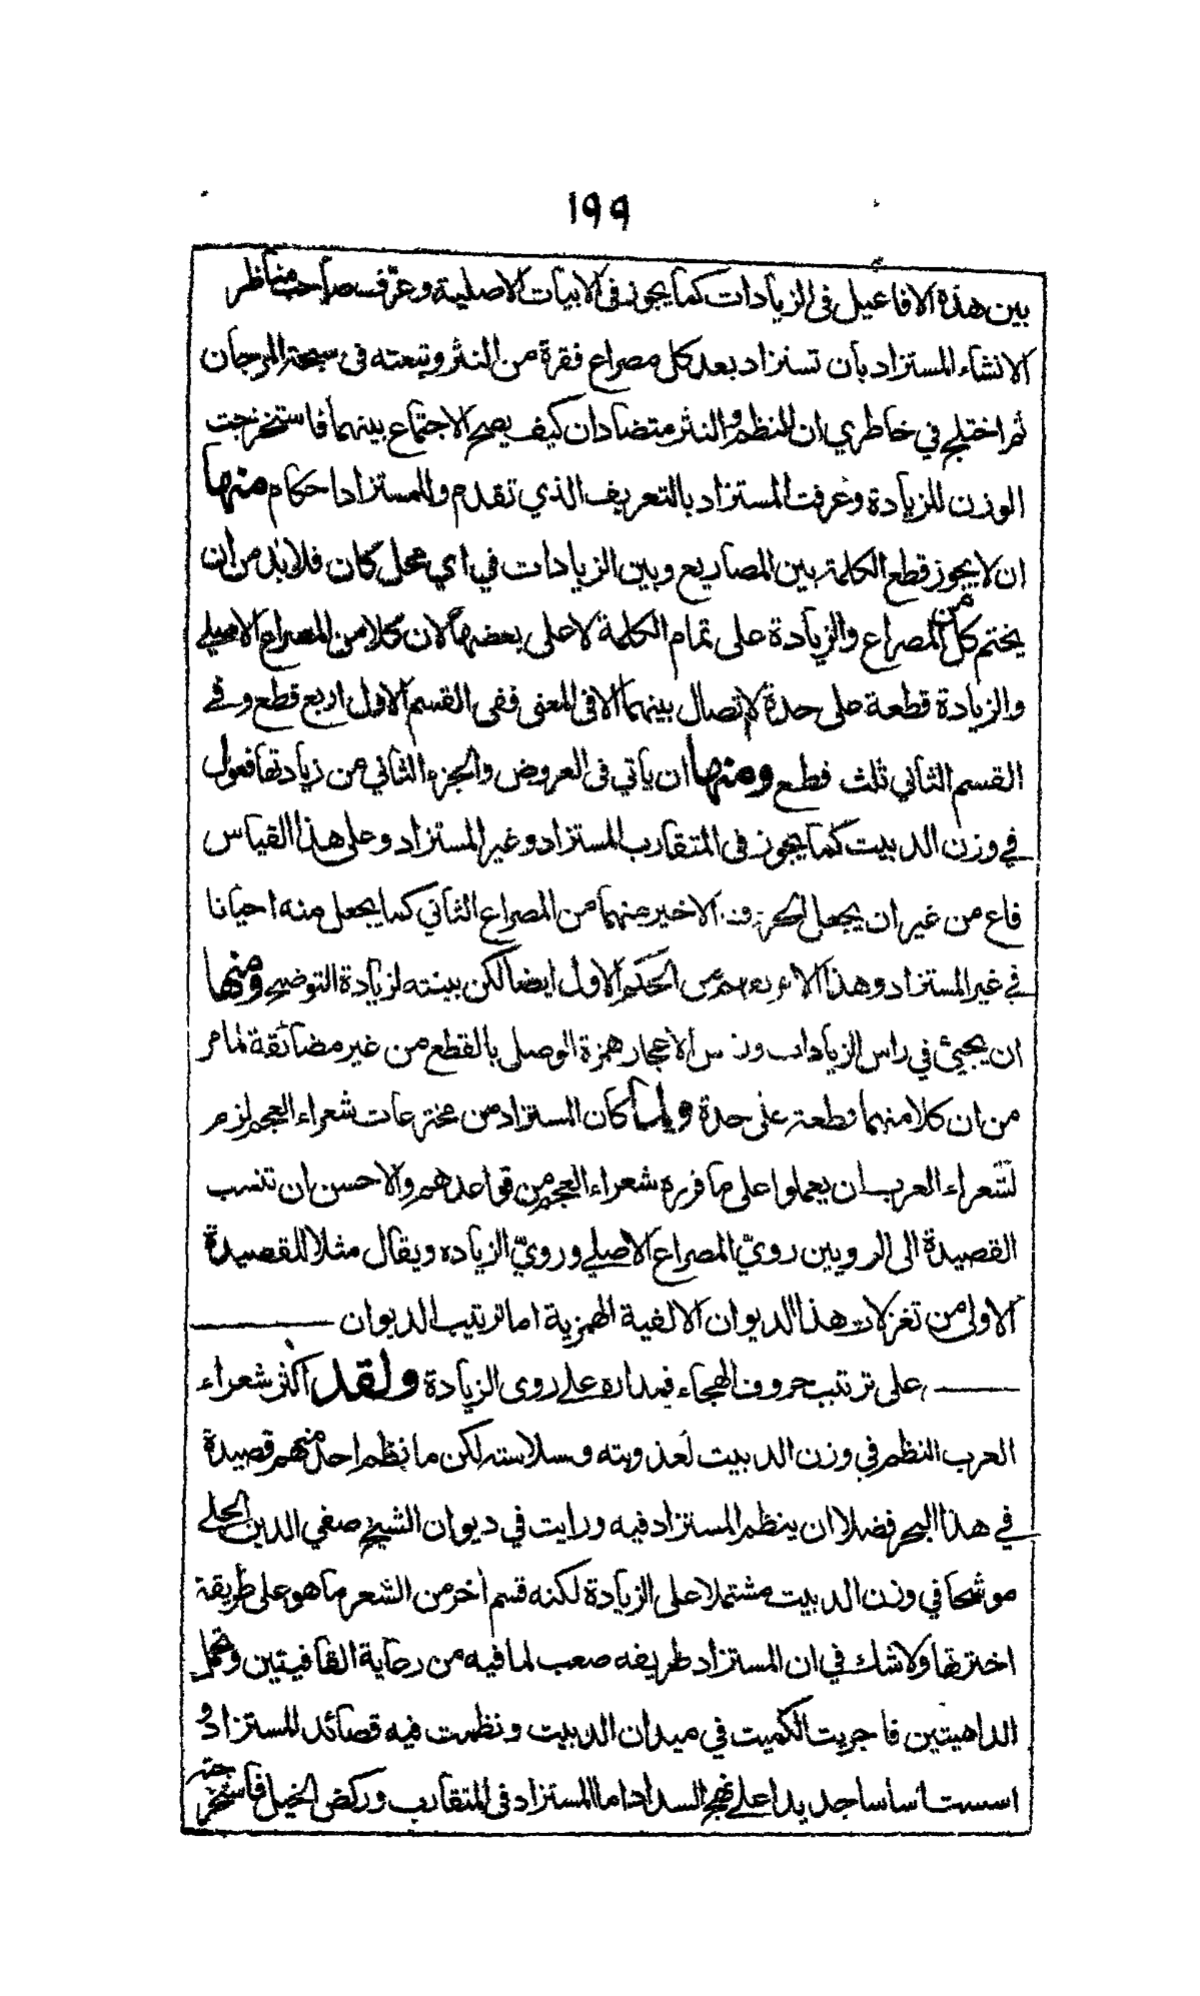 ١٩٩
بين هذه الافاعيل في الزيادات كما يجوز في الابيات الاصلية وعرّف صاحب مناظر
الانشاء المستزاد بان تستزاد بعد كل مصراع فقرة من النثر وتبعته في سبحة المرجان
ثم اختلج في خاطري ان النظم والنثر متضادان كيف يصح الاجتماع بينهما فاستخرجت
الوزن للزيادة وعرفت المستزاد بالتعريف الذي تقدم وللمستزاد احكام منها
ان لا يجوز قطع الكلمة بين المصاريع وبين الزيادات في اي محل كان فلا بد من ان
يختم كل من المصراع والزيادة على تمام الكلمة لا على بعضها لان كلا من المصراع الاصيلي
والزيادة قطعة على حدة لا تصال بينهما الا في المعنى ففي القسم الاول اربع قطع وفي
القسم الثاني ثلث قطع ومنها ان ياتي في العروض والجزء الثاني من زيادتها فعول
في وزن الدبيت كما يجوز في المتقارب المستزاد وغير المستزاد وعلى هذا القياس
فاع من غير ان يجعل الاخير منهما من المصراع الثاني كما يجعل منه احيانا
في غير المستزاد وهذا من الحكم الاول ايضا لكن بينته لزيادة التوضيح ومنها
ان يجيئ في راس الزيادات الاعجاز همزة الوصل بالقطع من غير مضائقة لما مر
من ان كلا منهما قطعة على حدة ولما كان المستزاد من مخترعات شعراء العجم لزم
لشعراء العرب ان يعملوا على ما قرره شعراء العجم من قواعدهم والاحسن ان تنسب
القصيدة الى الرويين رويّ المصراع الاصلي ورويّ الزياده ويقال مثلا للقصيدة
الاولى من تغزلات هذا الديوان الالفية الهمزية اما ترتيب الديوان
على ترتيب حروف الهجاء فمداره على روى الزيادة ولقد اكثر شعراء
العرب النظم في وزن الدبيت لعذوبته وسلاسته لكن ما نظم احد منهم قصيدة
في هذا البحر فضلا ان ينظم المستزاد فيه ورايت في ديوان الشيخ صفي الدين الحلي
موشحا في وزن الدبيت مشتملا على الزيادة لكنه قسم اخر من الشعر ما هو على طريقة
اخترتها ولا شك في ان المستزاد طريقه صعب لما فيه من رعاية القافيتين وتحمل
الداهيتين فاجريت الكميت في ميدان الدبيت ونظمت فيه قصائد المستزاد و
اسست اساسا جديدا على نهج السداد اما المستزاد في المتقارب وركض الخيل فاستخرجته